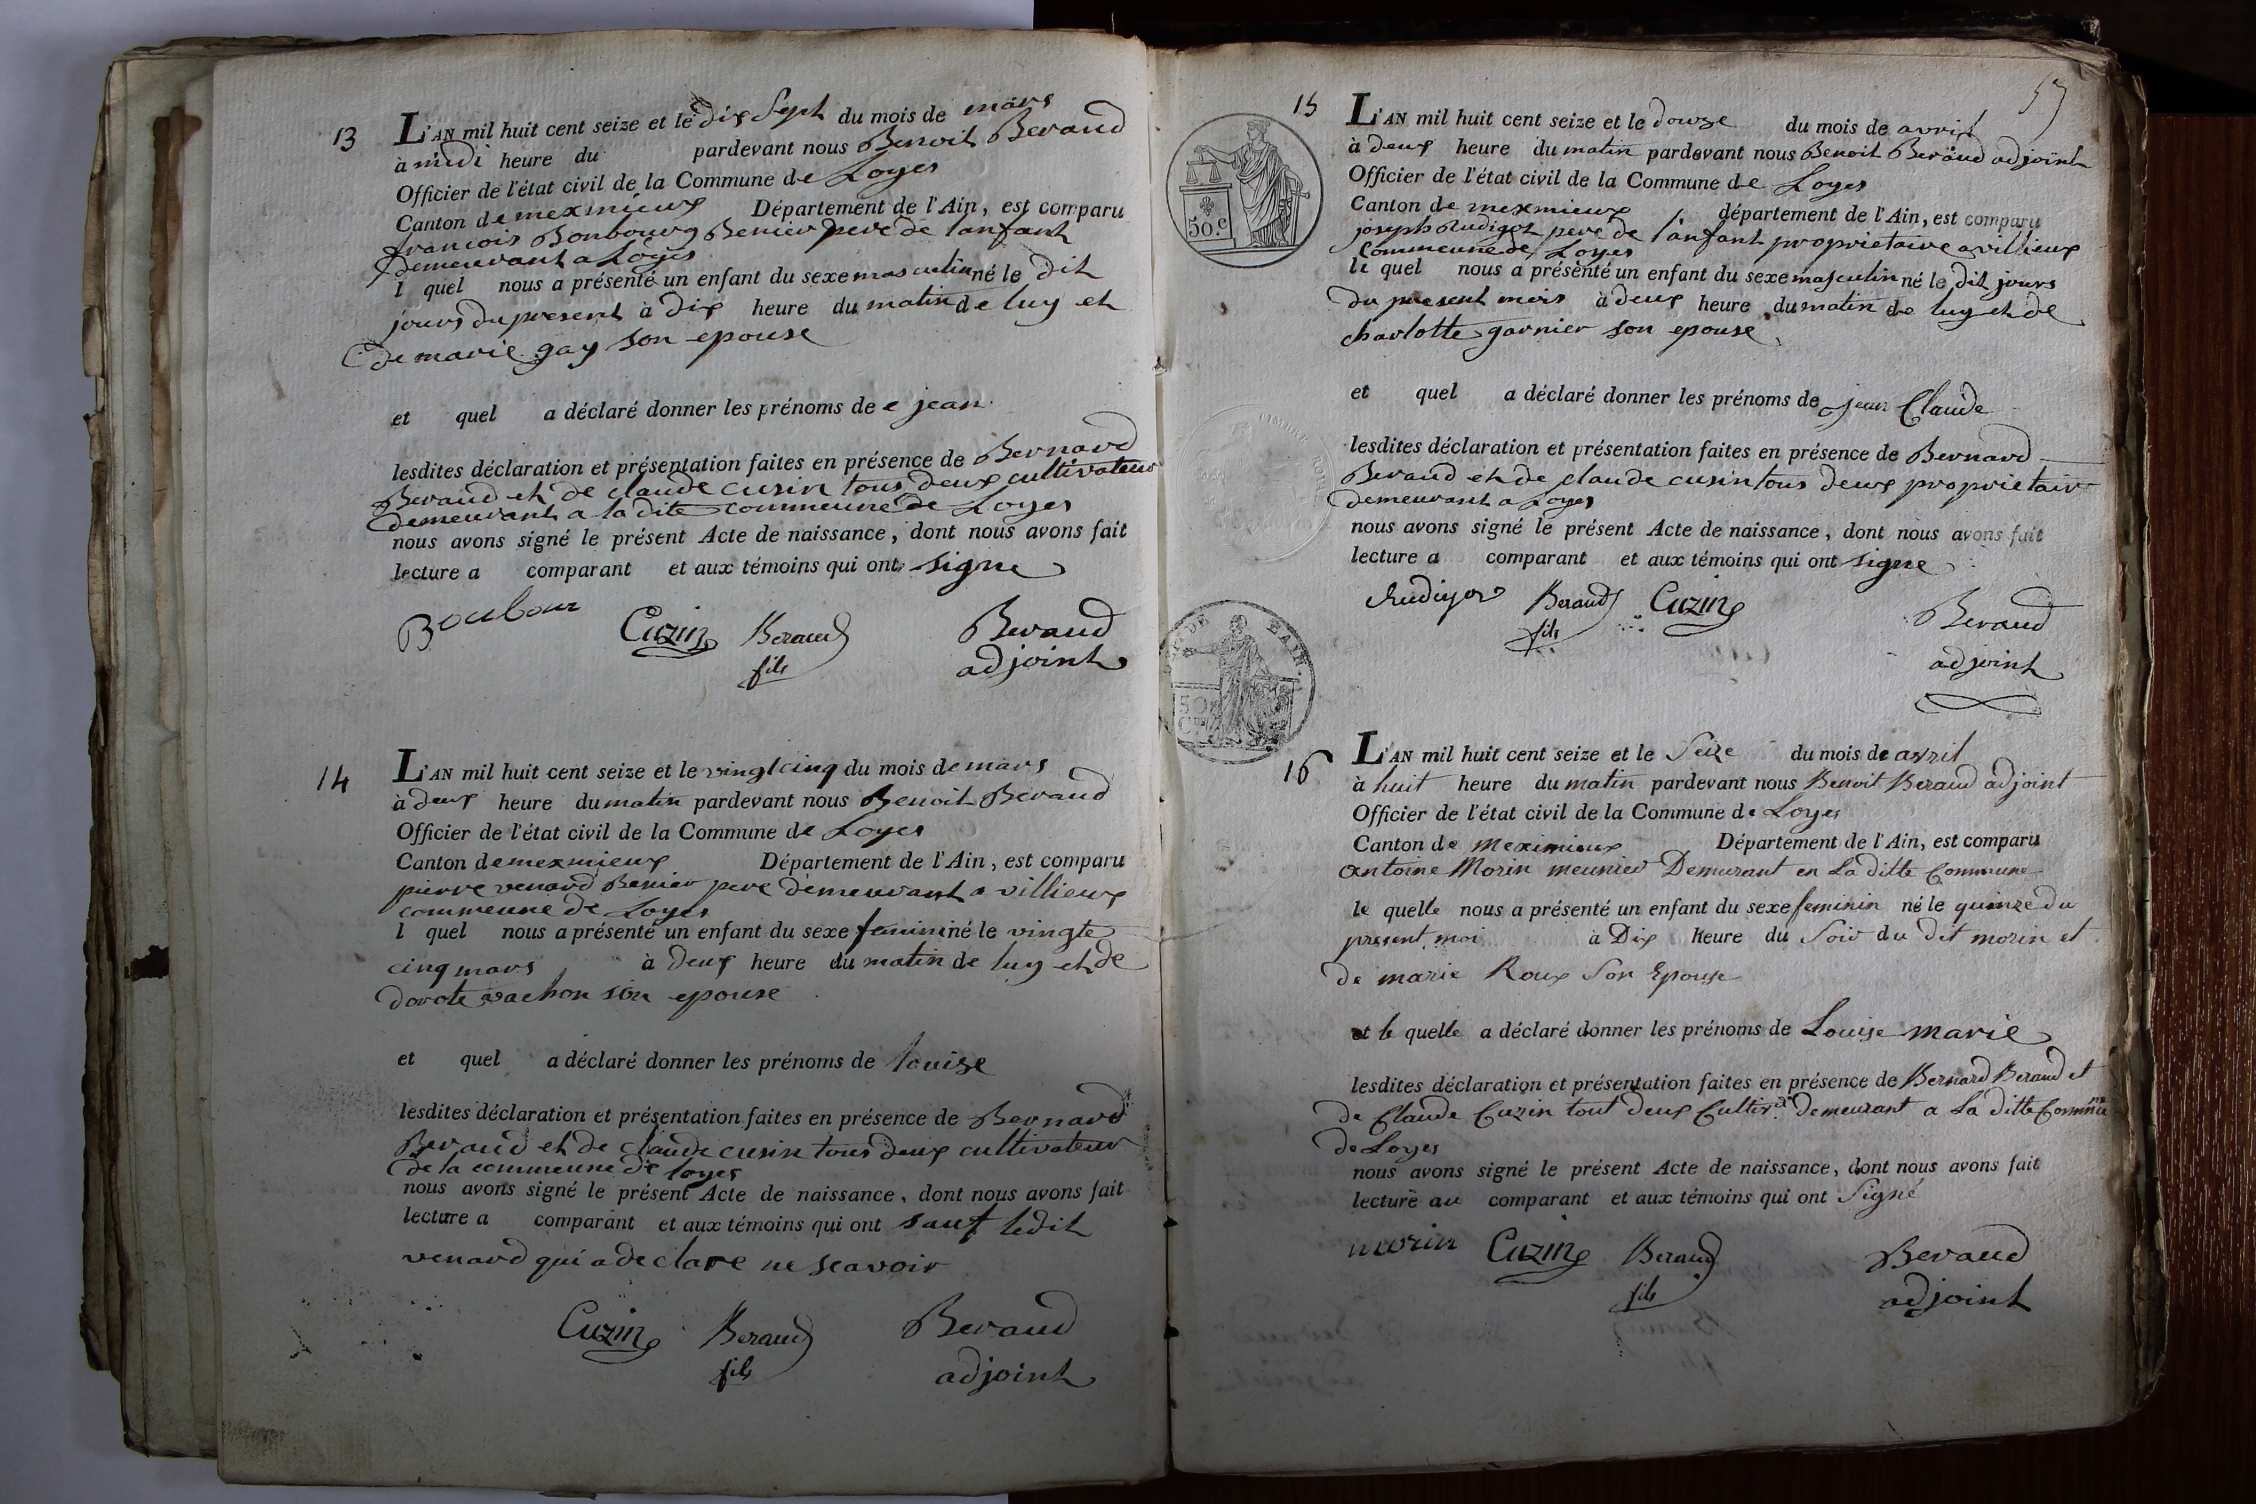 13
L'AN mil huit cent seize et le dix Sept du mois de mars
à midi heure du pardevant nous Benoit Beraud
Officier de l'état civil de la Commune de Loyes
Canton de mexmieux Département de l'Ain, est comparu
francois Bonbourg Benier pere de l'anfant
demeurant a Loyes
l quel nous a présenté un enfant du sexe masculin né le dit
jours du present à dix heure du matin de luy et
de marie gay son epouse
et quel a déclaré donner les prénoms de e jean
lesdites déclaration et présentation faites en présence de Bernard
Beraud et de claude cusin tous deux cultivateur
demeurant a la dite commeune de Loyes
nous avons signé le présent Acte de naissance, dont nous avons fait
lecture a comparant et aux témoins qui ont signe
Boubour Cuzin Beraud fils Beraud
adjoint
14
L'AN mil huit cent seize et le vingt cinq du mois de mars
à deux heure du matin pardevant nous Benoit Beraud
Officier de l'état civil de la Commune de Loyes
Canton de mexmieux Département de l'Ain, est comparu
pierre venard Benier pere demeurant a villieux
commeune de Loyes
l quel nous a présenté un enfant du sexe feminin né le vingte
cinq mars à deux heure du matin de luy et de
dorote vachon son epouse
et quel a déclaré donner les prénoms de louise
lesdites déclaration et présentation faites en présence de Bernard
Beraud et de claude cusin tous deux cultivateur
de la commeune de loyes
nous avons signé le présent Acte de naissance, dont nous avons fait
lecture a comparant et aux témoins qui ont sauf ledit
venard qui a declare ne scavoir
Cuzin Beraud fils Beraud
adjoint
57
15
50.c
L'AN mil huit cent seize et le douze du mois de avril
à deux heure du matin pardevant nous Benoit Beraud adjoint
Officier de l'état civil de la Commune de Loyes
Canton de mexmieux département de l'Ain, est comparu
joseph Rudigoz pere de l'anfant proprietaire a villieux
commeune de Loyes
le quel nous a présenté un enfant du sexe masculin né le dit jours
du present mois à deux heure du matin de luy et de
charlotte garnier son epouse
et quel a déclaré donner les prénoms de jean Claude
lesdites déclaration et présentation faites en présence de Bernard
Beraud et de claude cusin tous deux proprietair
demeurant a Loyes
nous avons signé le présent Acte de naissance, dont nous avons fait
lecture a comparant et aux témoins qui ont signe
Rudigoz Beraud fils Cuzin Beraud
adjoint
DE L'AIN
50
16
L'AN mil huit cent seize et le Seize du mois de avril
à huit heure du matin pardevant nous Benoit Beraud adjoint
Officier de l'état civil de la Commune de Loyes
Canton de meximieux Département de l'Ain, est comparu
antoine Morin meunier Demurant en La ditte Commune
le quelle nous a présenté un enfant du sexe feminin né le quinze du
present moi à Dix heure du Soir du dit morin et
de marie Roux Son Epouse
et le quelle a déclaré donner les prénoms de Louise marie
lesdites déclaration et présentation faites en présence de Bernard Beraud et
de Claude Cuzin tout deux Cultivr demeurant a La ditte Commne
de Loyes
nous avons signé le présent Acte de naissance, dont nous avons fait
lecture au comparant et aux témoins qui ont Signé
morin Cuzin Beraud fils Beraud
adjoint